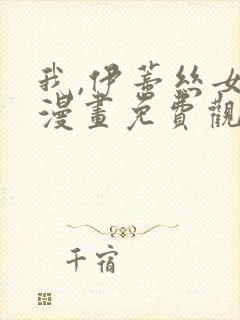 我,伊蒂丝女
漫畫免費觀
千宿